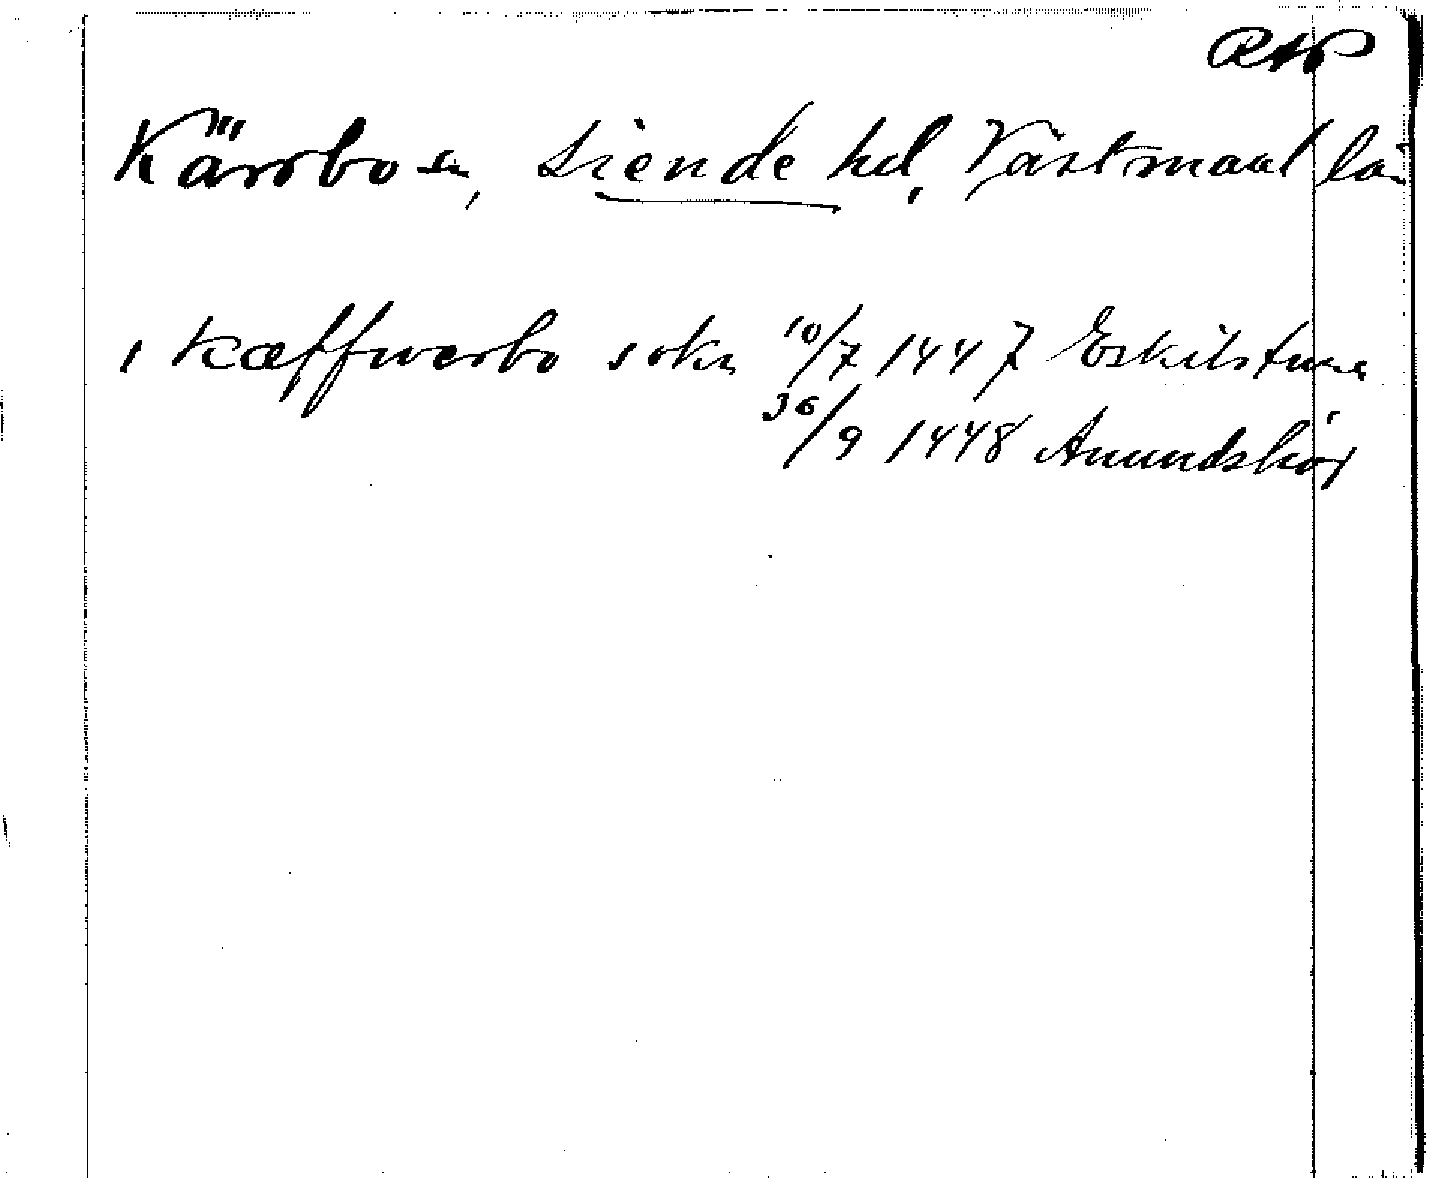 RAP
Kärrbo sn, Siende hd, Västmanl län
i Kæffwerbo sokn 10/7 1447 Eskilstuna
30/9 1448 Anundshög